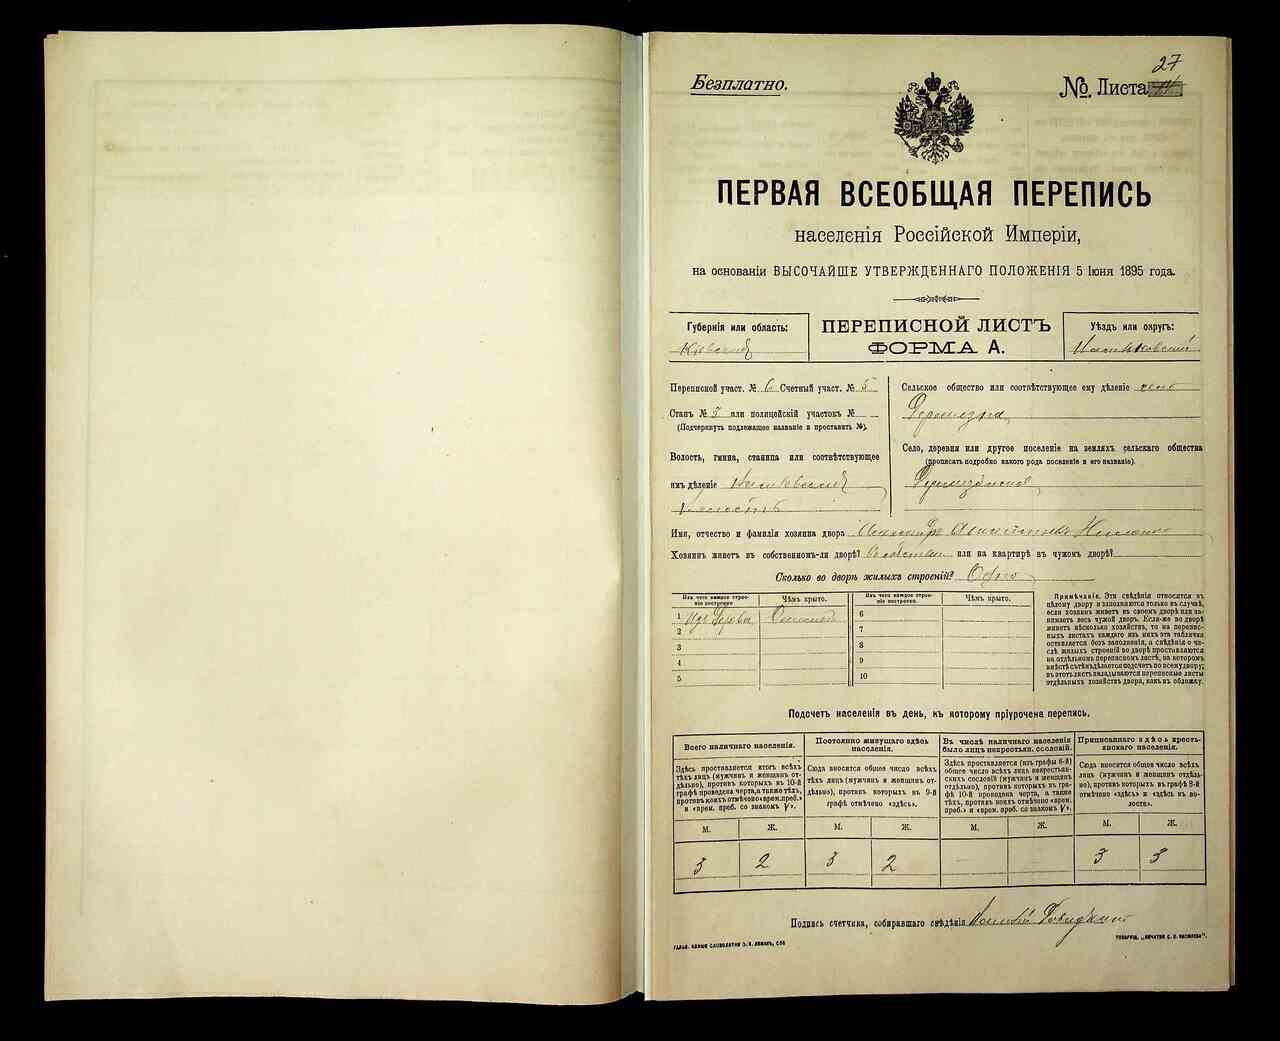 27
Безплатно.
№. Листа
ПЕРВАЯ ВСЕОБЩАЯ ПЕРЕПИСЬ
населенія Россійской Имперіи,
на основаніи ВЫСОЧАЙШЕ УТВЕРЖДЕННАГО ПОЛОЖЕНІЯ 5 Іюня 1895 года.
Губернія или область:
Кіевская
ПЕРЕПИСНОЙ ЛИСТЪ
ФОРМА А.
Уѣздъ или округъ:
Переписной участ. № 6 Счетный участ. № 5
Станъ № 3 или полицейскій участокъ №
(Подчеркнуть подлежащее названіе и проставить №).
Волость, гмина, станица или соотвѣтствующее
имъ дѣленіе
волость
Сельское общество или соотвѣтствующее ему дѣленіе село
Село, деревня или другое поселеніе на земляхъ сельскаго общества
(прописать подробно какого рода поселеніе и его названіе).
Имя, отчество и фамилія хозяина двора
Хозяинъ живетъ въ собственномъ-ли дворѣ? или на квартирѣ въ чужомъ дворѣ?
Сколько во дворѣ жилыхъ строеній? Одно
Изъ чего каждое строеніе построено. Чѣмъ крыто.
1 Изъ дерева Соломой
2
3
4
5
Изъ чего каждое строеніе построено. Чѣмъ крыто.
6
7
8
9
10
Примѣчаніе. Эти свѣдѣнія относятся къ
цѣлому двору и заполняются только въ случаѣ,
если хозяинъ живетъ въ своемъ дворѣ или занимаетъ
весь чужой дворъ. Если-же во дворѣ
живетъ нѣсколько хозяйствъ, то на переписныхъ
листахъ каждаго изъ нихъ эта табличка
оставляется безъ заполненія, а свѣдѣнія о числѣ
жилыхъ строеній во дворѣ проставляются
на отдѣльномъ переписномъ листѣ, на которомъ
вмѣстѣ съ тѣмъ дѣлается подсчетъ по всему двору;
въ этотъ листъ вкладываются переписные листы
отдѣльныхъ хозяйствъ двора, какъ въ обложку.
Подсчетъ населенія въ день, къ которому пріурочена перепись.
Всего наличнаго населенія.
Здѣсь проставляется итогъ всѣхъ
тѣхъ лицъ (мужчинъ и женщинъ отдѣльно),
противъ которыхъ въ 10-й
графѣ проведена черта, а также тѣхъ,
противъ коихъ отмѣчено «врем. преб.»
и «врем. преб. со знакомъ V».
Постоянно живущаго здѣсь
населенія.
Сюда вносится общее число всѣхъ
тѣхъ лицъ (мужчинъ и женщинъ отдѣльно),
противъ которыхъ въ 9-й
графѣ отмѣчено «здѣсь».
Въ числѣ наличнаго населенія
было лицъ некрестьян. сословій.
Здѣсь проставляется (изъ графы 6-й)
общее число всѣхъ лицъ некрестьянскихъ
сословій (мужчинъ и женщинъ
отдѣльно), противъ которыхъ въ графѣ
10-й проведена черта, а также
тѣхъ, противъ коихъ отмѣчено «врем.
преб.» и «врем. преб. со знакомъ V».
Приписаннаго здѣсь крестьянскаго
населенія.
Сюда вносится общее число всѣхъ
лицъ (мужчинъ и женщинъ отдѣльно),
противъ которыхъ въ графѣ 8-й
отмѣчено «здѣсь» и «здѣсь въ волости».
М. Ж. М. Ж. М. Ж. М. Ж.
3 2 3 2 3 3
Подпись счетчика, собиравшаго свѣдѣнія